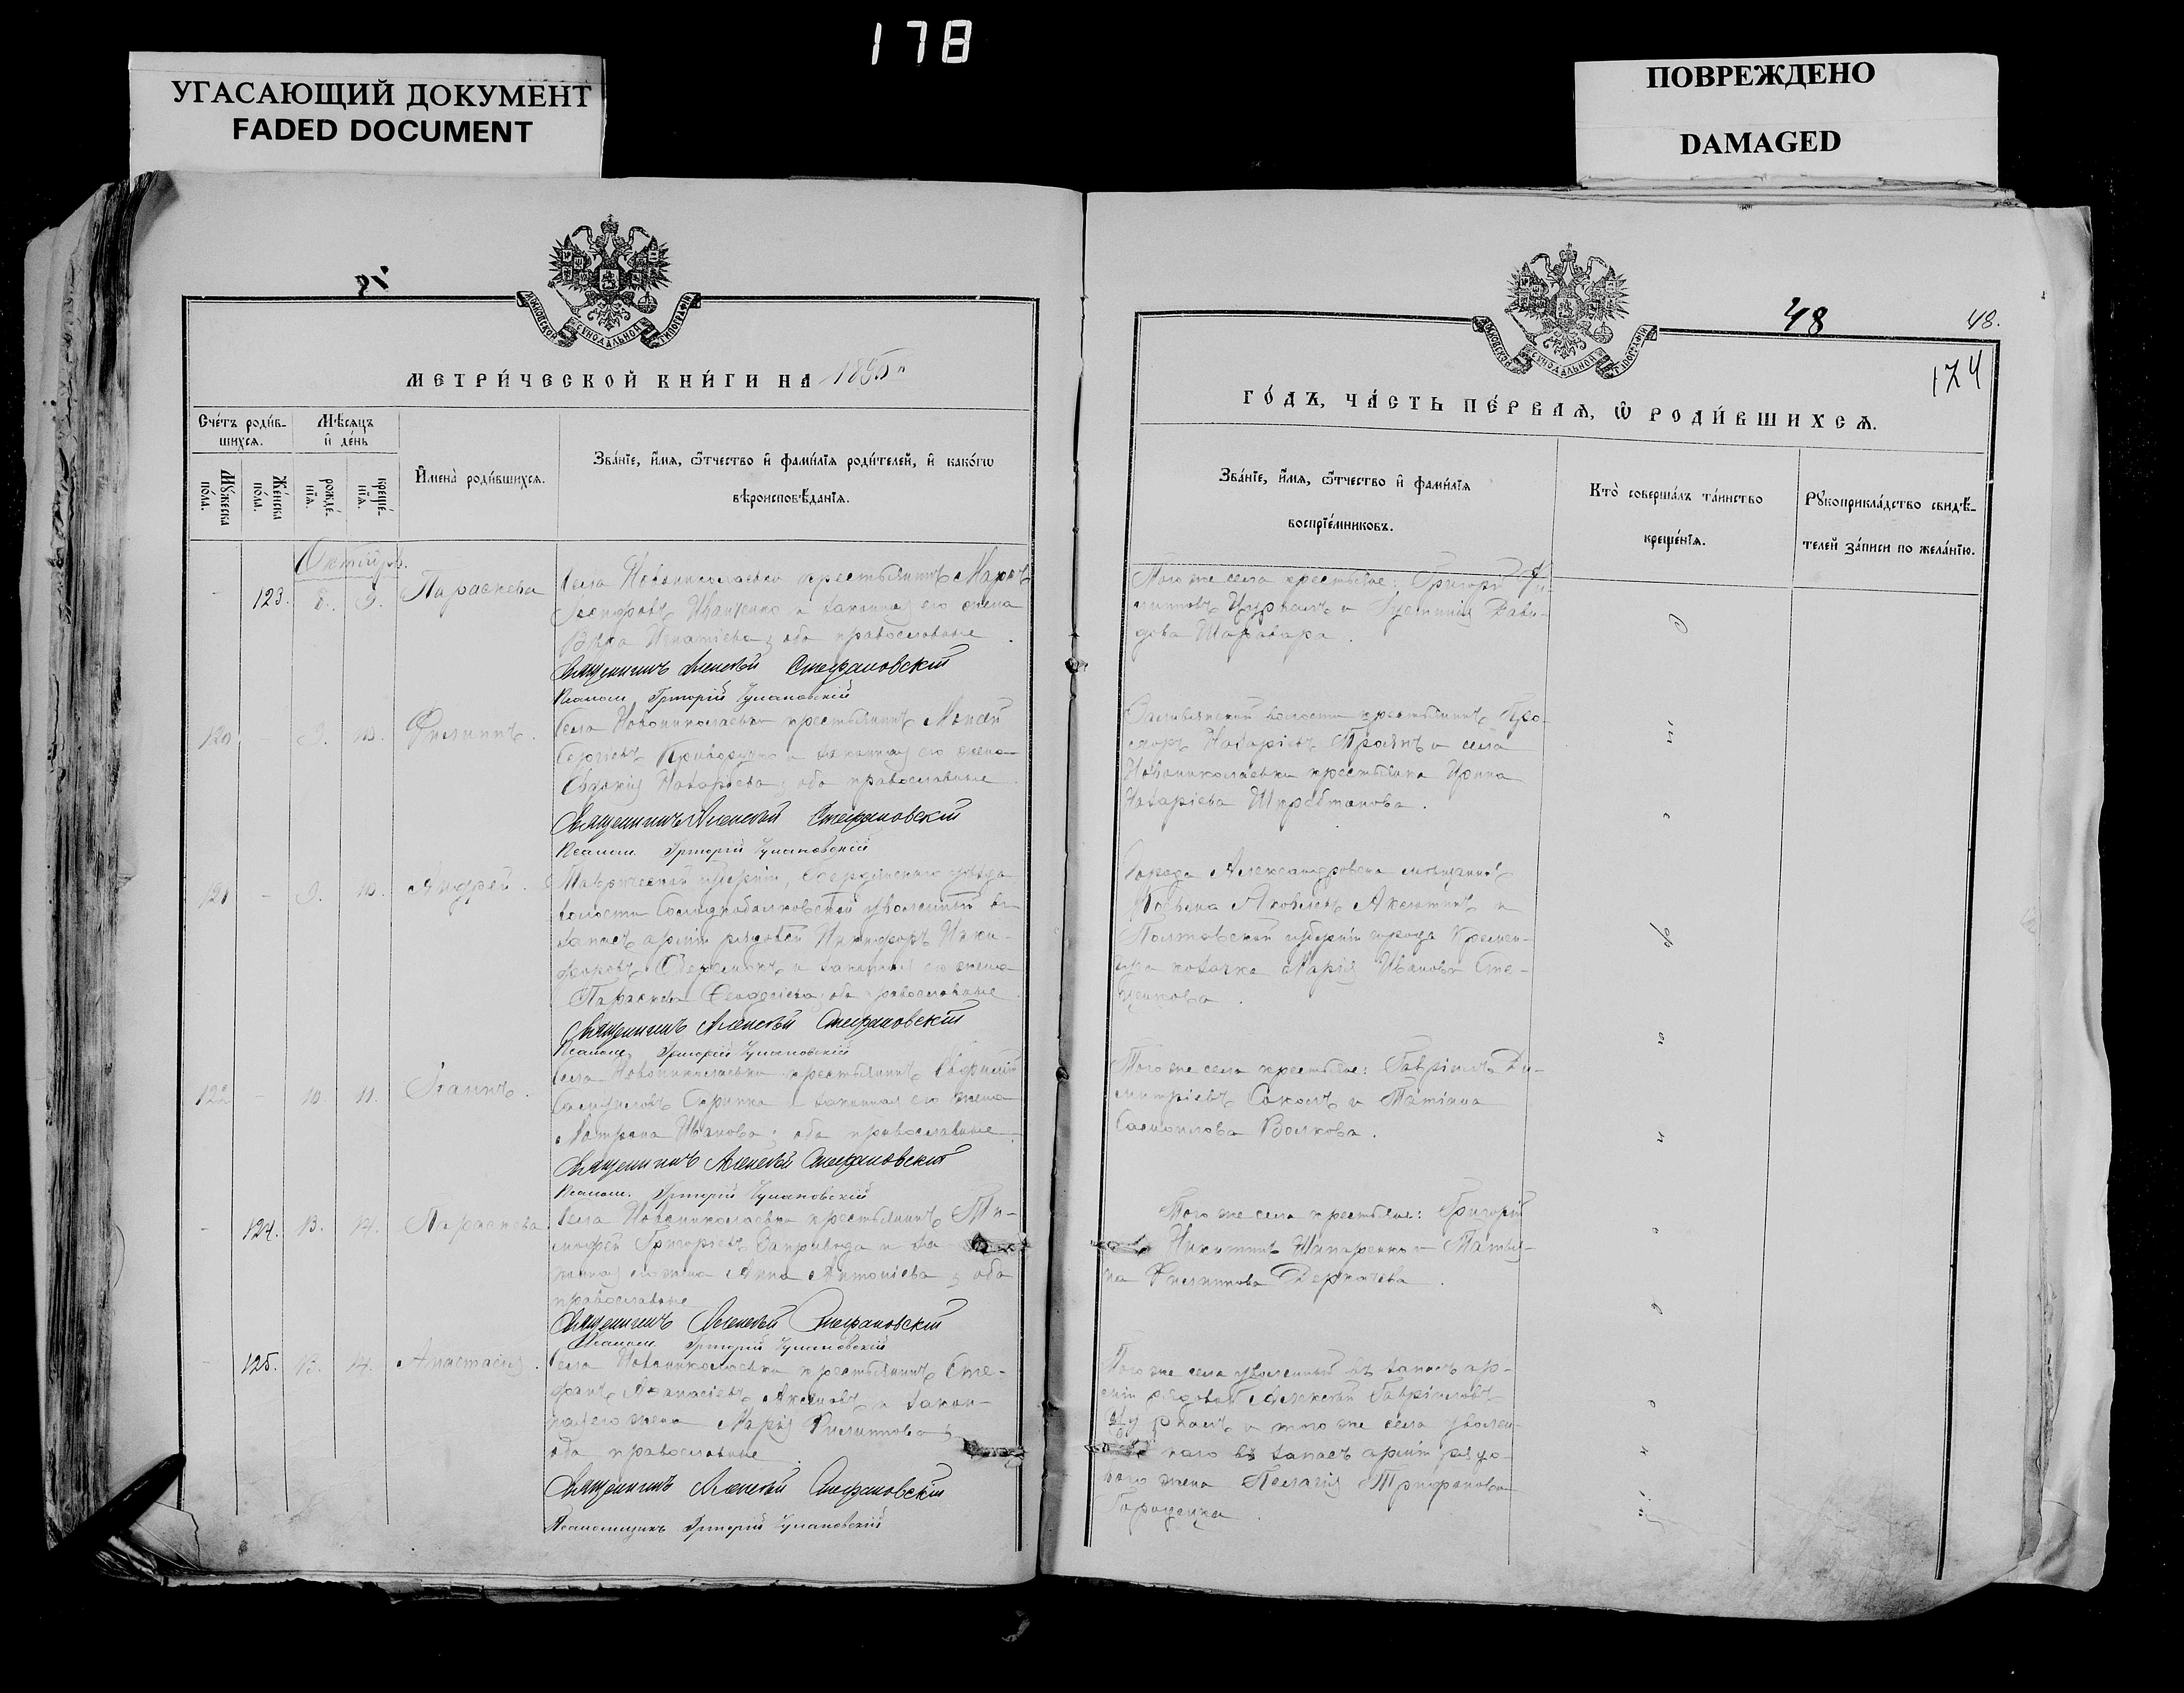 178
УГАСАЮЩИЙ ДОКУМЕНТ
FADED DOCUMENT
ПОВРЕЖДЕНО
DAMAGED
МОСКОВСКОЙ СѴНОДАЛЬНОЙ ТИПОГРАФІИ
МЕТРИ́ЧЕСКОЙ КНИ́ГИ НА 1895
Сче́тъ роди́в-
шихсѧ.
Мѣ́сѧцъ
и҆ де́нь
Мꙋ́жеска
по́ла.
Же́нска
по́ла.
рожде́-
нїѧ.
креще́-
нїѧ.
И҆мена̀ роди́вшихсѧ.
Зва́нїе, и҆́мѧ, ѻ҆́тчество и҆ фами́лїѧ роди́телей, и҆ како́гѡ
вѣроисповѣ́данїѧ.
Октябрь.
123. 8. 9. Параскева
Села Новониколаевки крестьянинъ Марко
Иващенко и законная его жена
Вѣра Игнатіева; оба православные
Священникъ Алексѣй Стефановскій
Псаломщ. Григорій Чулановскій
120 9. 10. Филиппъ.
Села Новониколаевки крестьянинъ Моисей
Сергіевъ Криворучко и законная его жена
Евдокія Назарьева; оба православные
Священникъ Алексѣй Стефановскій
Псаломщ. Григорій Чулановскій
121 9. 10. Андрей.
Таврической губерніи, Бердянскаго уѣзда
волости уволенный въ
запасъ арміи рядовой Никифоръ Ники-
форовъ и законная его жена
Параскева Феодосіева; оба православные
Священникъ Алексѣй Стефановскій
Псаломщ. Григорій Чулановскій
122 10. 11. Іоаннъ.
Села Новониколаевки крестьянинъ
Самуиловъ Скрипка и законная его жена
Матрона Иванова; оба православные
Священникъ Алексѣй Стефановскій
Псаломщ. Григорій Чулановскій
124. 13. 14. Параскева
Села Новониколаевки крестьянинъ Ти-
мофей Григорьевъ и за-
жена Анна Антоніева; оба
православные
Священникъ Алексѣй Стефановскій
Псаломщ. Григорій Чулановскій
125. 13. 14. Анастасія.
Села Новониколаевки крестьянинъ Сте-
фанъ Аѳанасіевъ Аксеновъ и закон-
ная его жена Марія Филиппова;
оба православные
Священникъ Алексѣй Стефановскій
Псаломщикъ Григорій Чулановскій
48
48.
174
МОСКОВСКОЙ СѴНОДАЛЬНОЙ ТИПОГРАФІИ
ГО́ДЪ, ЧА́СТЬ ПЕ́РВАѦ, Ѡ҆ РОДИ́ВШИХСѦ.
Зва́нїе, и҆́мѧ, ѻ҆́тчество и҆ фами́лїѧ
воспрїе́мниковъ.
Кто̀ соверша́лъ та́инство
креще́нїѧ.
Рꙋкоприкла́дство свидѣ́-
телей за́писи по жела́нїю.
Того же села крестьяне: Григорій Фи-
липповъ Цуркалъ и Дави-
дова Шаравара.
волости крестьянинъ Про-
Назаріевъ Троянъ и села
Новониколаевки крестьянка Ирина
Назаріева
Города Александровска мѣщанинъ
Косьма Яковлевъ и
Полтавской губерніи города Кремен-
чуга козачка Марія Иванова Сте-
ценкова.
Того же села крестьяне: Гавріилъ Ди-
митріевъ Соколъ и Татіана
Самоилова Волкова.
Того же села крестьяне: Григорій
Никитинъ и Татья-
на Филиппова Деркачева.
Того же села уволенный въ запасъ ар-
міи рядовой Алексѣй Гавріиловъ
и того же села уволен-
наго въ запасъ арміи рядо-
вого жена Пелагія Трифонова